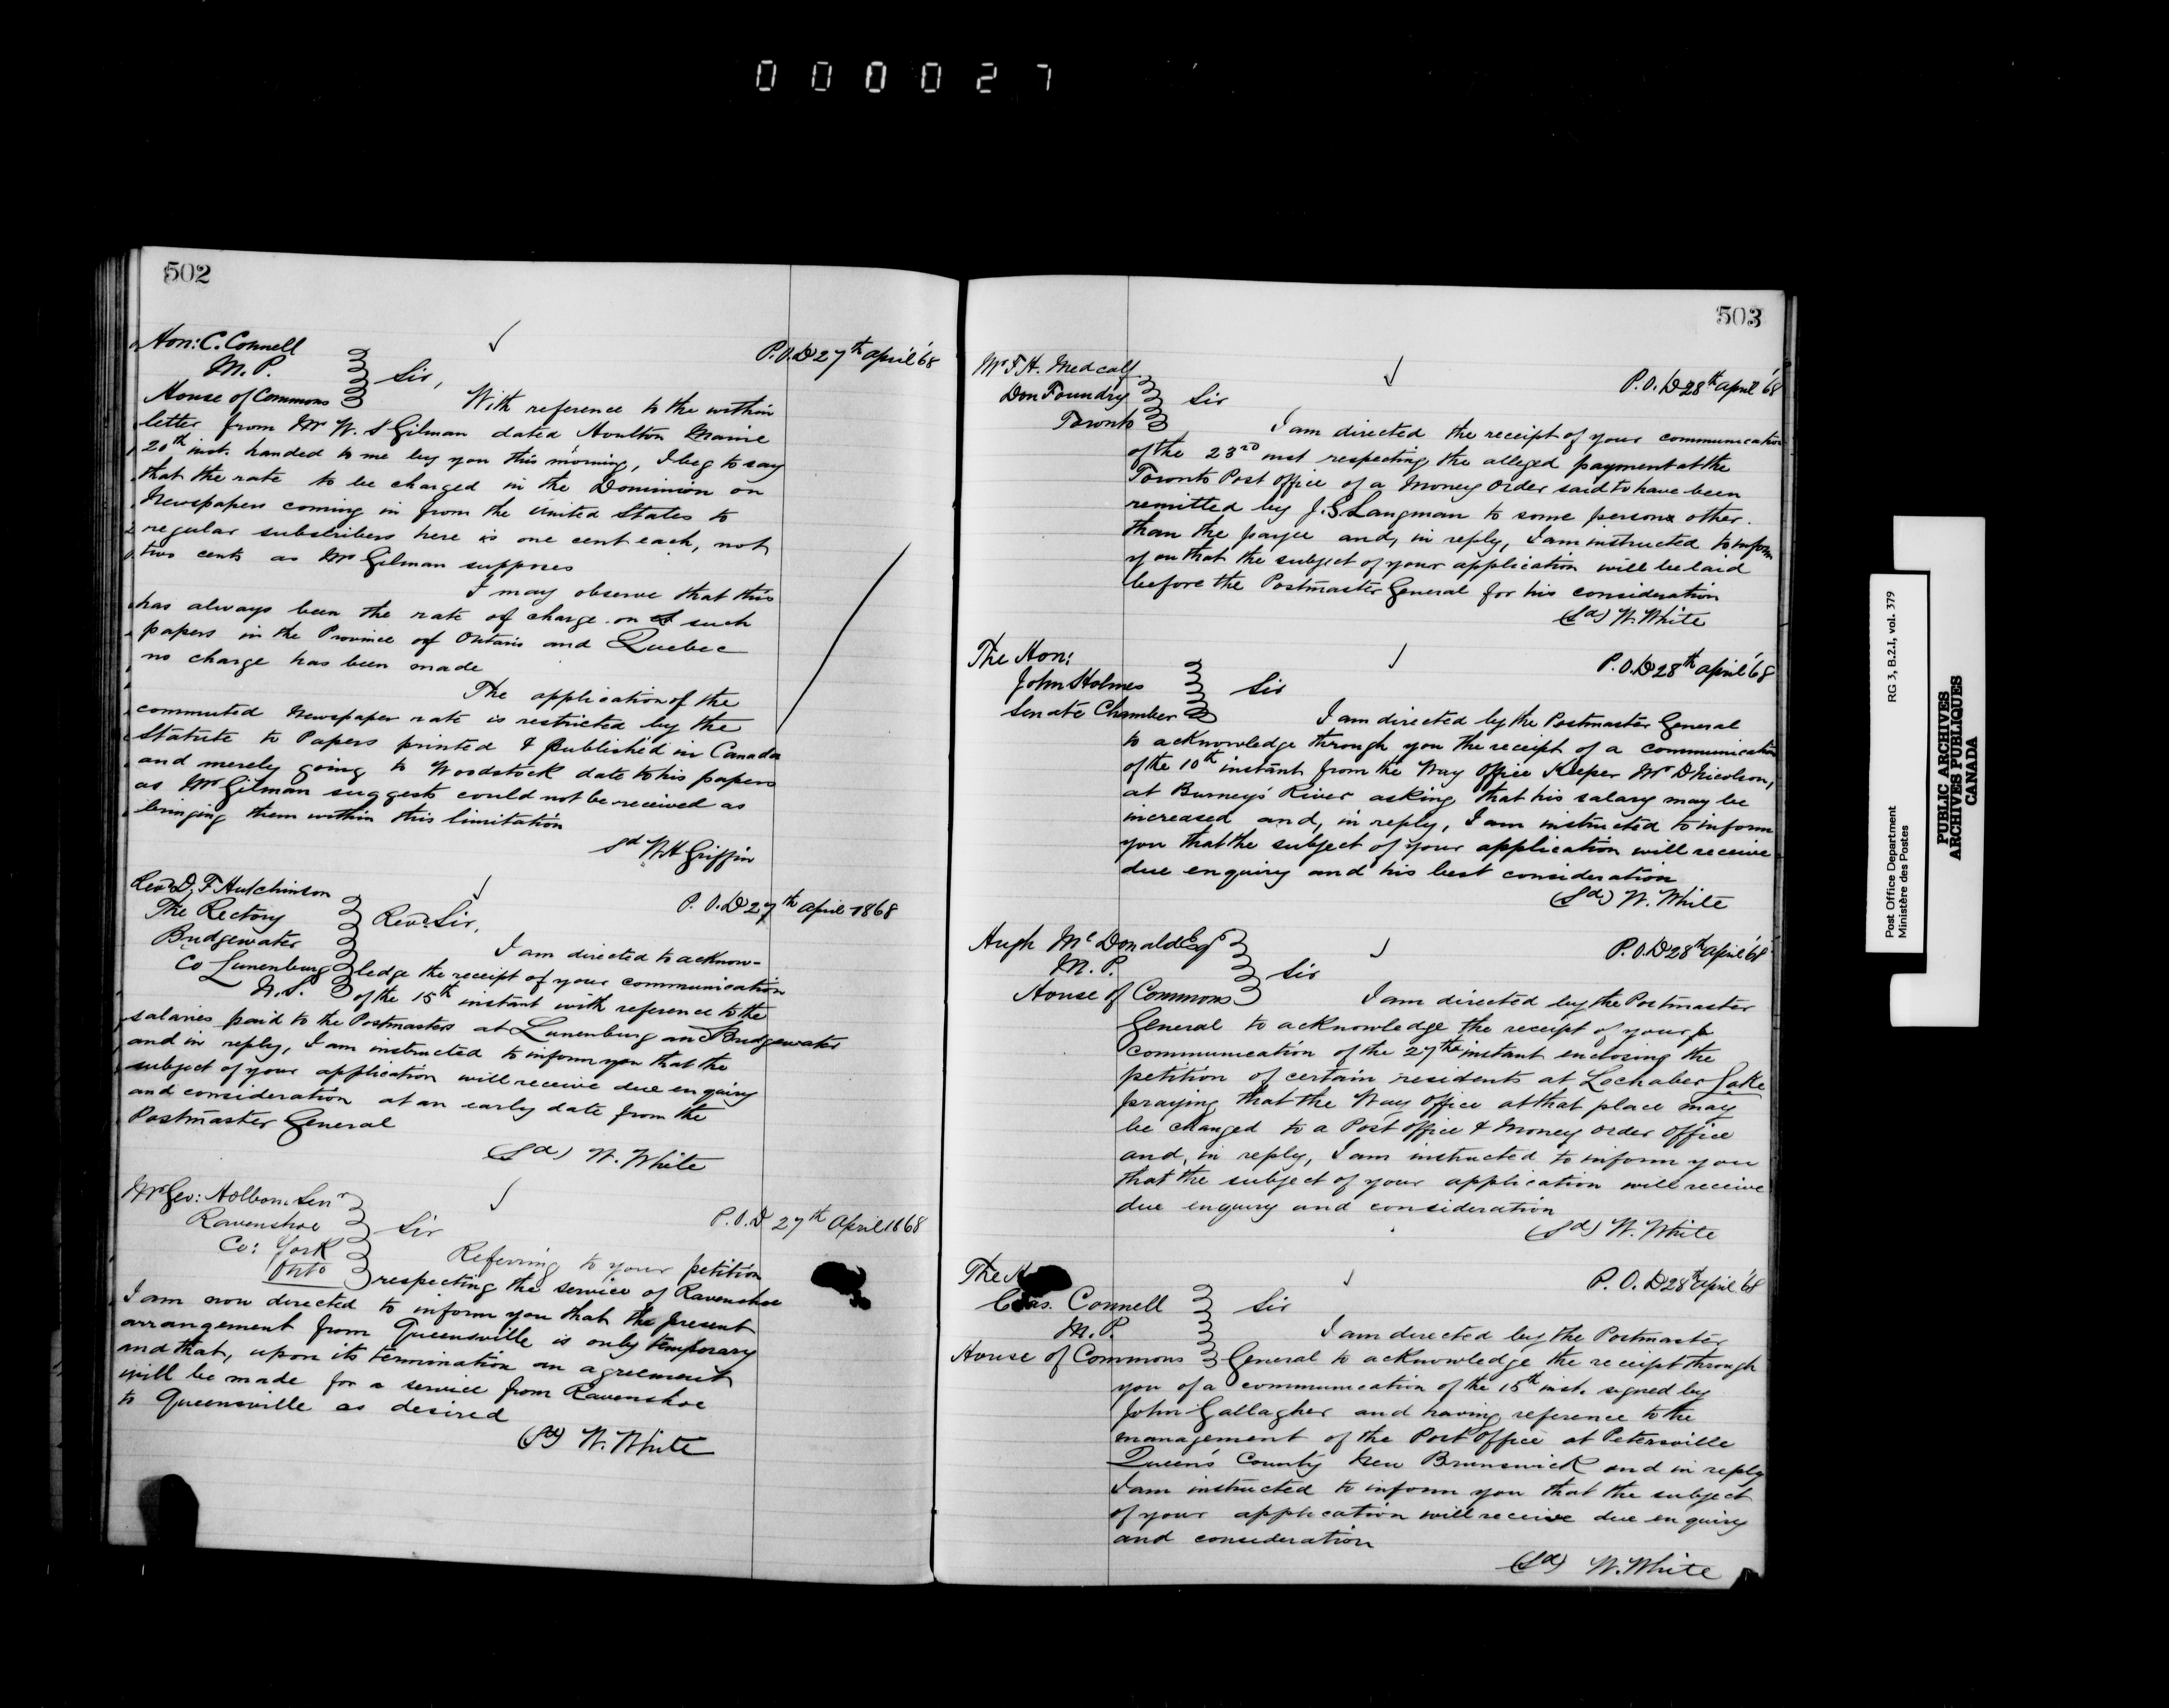 000027
502
Hon: C. Connell
M. P.
House of Commons
P.O.D 27th April '68
Sir,
With reference to the within
letter from Mr W. S Gilman dated Houlton Maine
20th inst. handed to me by you this morning, I beg to say
that the rate to be charged in the Dominion on
Newspapers coming in from the United States to
regular subscribers here is one cent each, not
two cents as Mr Gilman supposes
I may observe that this
has always been the rate of charge on such
papers in the Province of Ontario and Quebec
no charge has been made
The application of the
commuted Newspaper rate is restricted by the
Statute to Papers printed & published in Canada
and merely going to Woodstock date to his papers
as Mr Gilman suggests could not be received as
bringing them within this limitation
sd W H Griffin
Revd D. F Hutchinson
The Rectory
Bridgewater
Co Lunenburg
N. S.
P. O. D 27th April 1868
Revd Sir,
I am directed to acknow-
ledge the receipt of your communication
of the 15th instant with reference to the
salaries paid to the Postmasters at Lunenburg and Bridgewater
and in reply, I am instructed to inform you that the
subject of your application will receive due enquiry
and consideration at an early date from the
Postmaster General
(Sd) W. White
Mr Geo: Holborn Senr
Ravenshoe
Co: York
Onto
P.O.D. 27th April 1868
Sir
Referring to your petition
respecting the service of Ravenshoe
I am now directed to inform you that the present
arrangement from Queensville is only temporary
and that, upon its termination an agreement
will be made for a service from Ravenshoe
to Queensville as desired
(Sd) W. White
503
Mr F. H. Medcalf
Don Foundry
Toronto
P.O.D 28th April '68
Sir
I am directed the receipt of your communication
of the 23rd inst respecting the alleged payment at the
Toronto Post Office of a Money Order said to have been
remitted by J. S. Langman to some person other
than the payee and, in reply, I am instructed to inform
you that the subject of your application will be laid
before the Postmaster General for his consideration
(Sd) W. White
The Hon:
John Holmes
Senate Chamber
P.O.D 28th April '68
Sir
I am directed by the Postmaster General
to acknowledge through you the receipt of a communication
of the 10th instant from the Way Office Keeper Mr D Nicolson,
at Burney's River asking that his salary may be
increased and, in reply, I am instructed to inform
you that the subject of your application will receive
due enquiry and his best consideration
(Sd) W. White
Hugh McDonald Esqr
M. P.
House of Commons
P.O.D 28th April '68
Sir
I am directed by the Postmaster
General to acknowledge the receipt of your
communication of the 27th instant enclosing the
petition of certain residents at Lochaber Lake
praying that the Way Office at that place may
be changed to a Post Office & Money Order Office
and, in reply, I am instructed to inform you
that the subject of your application will receive
due enquiry and consideration
(Sd) W. White
The
Chas. Connell
M. P.
House of Commons
P. O. D 28th April '68
Sir
I am directed by the Postmaster
General to acknowledge the receipt through
you of a communication of the 15th inst. signed by
John Gallagher and having reference to the
management of the Post Office at Petersville
Queen's County New Brunswick and in reply
I am instructed to inform you that the subject
of your application will receive due enquiry
and consideration
(Sd) W. White
Post Office Department RG 3, B.2.I, vol. 379
Ministère des Postes
PUBLIC ARCHIVES
ARCHIVES PUBLIQUES
CANADA